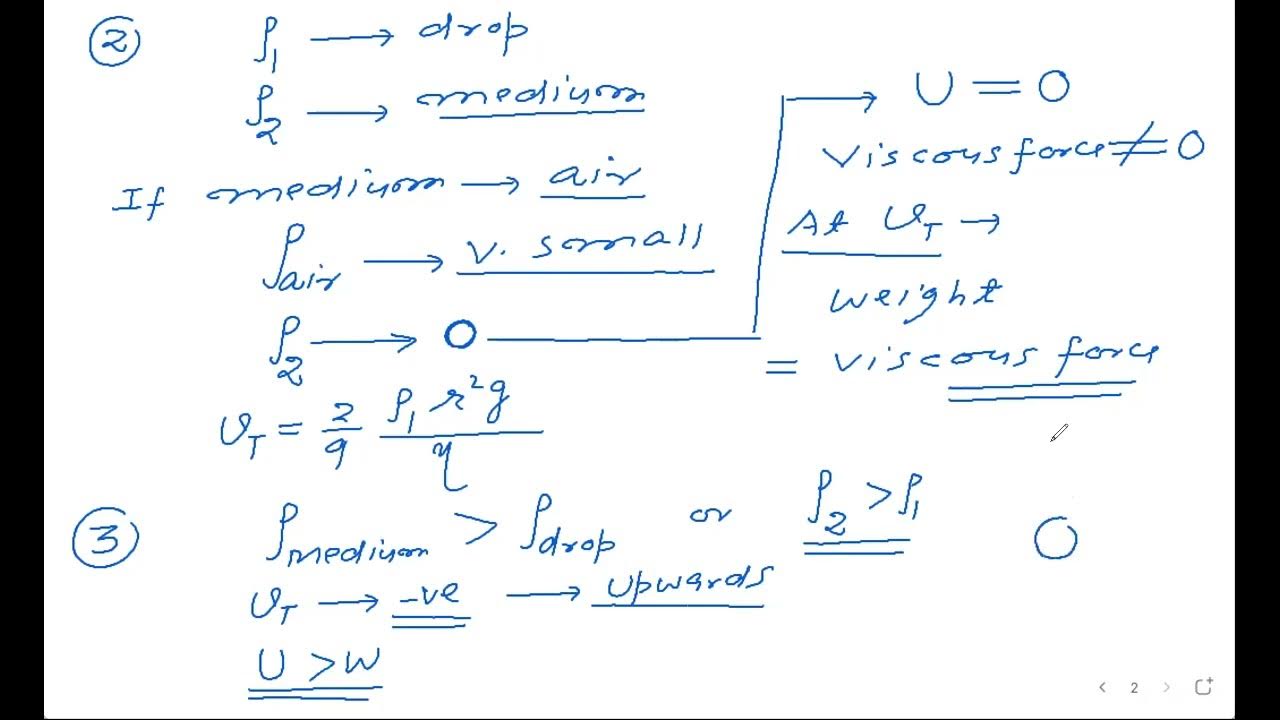 ② ρ₁ → drop
ρ₂ → medium
If medium → air
ρair → v. small
ρ₂ → 0
→ U = 0
Viscous force ≠ 0
At υT →
weight
= viscous force
υT = 2/9 ρ₁ r²g / η
③ ρmedium > ρdrop or ρ₂ > ρ₁
υT → -ve → upwards
U > W
< 2 >